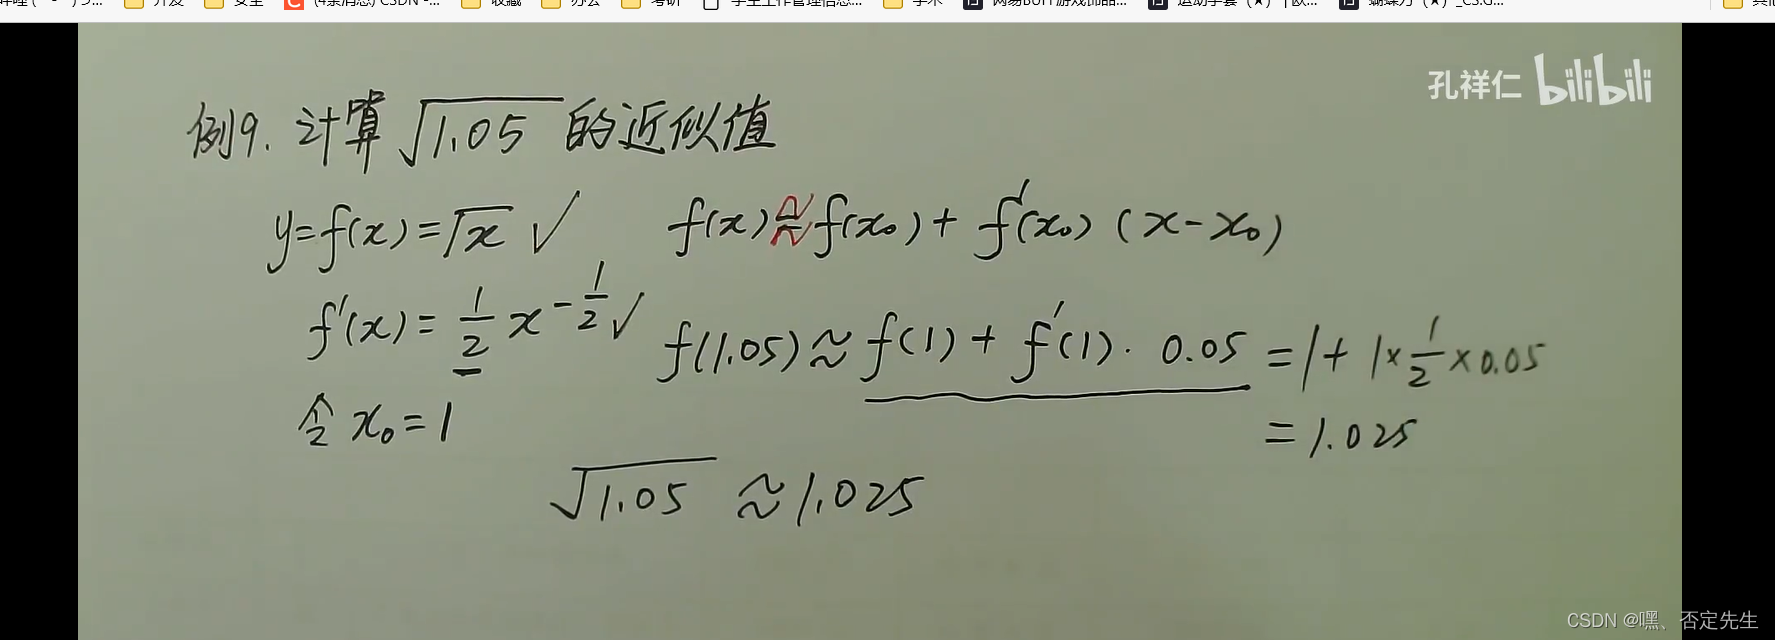 开发 安全 (4条消息) CSDN -... 收藏 办公 考研 学生工作管理信息... 学术 网易BUFF游戏饰品... 运动手套（★） | 欧... 蝴蝶刀（★）_CS:G...
孔祥仁 bilibili
例9. 计算 √1.05 的近似值
y=f(x)=√x ✓ f(x)≈f(x₀)+f'(x₀)(x-x₀)
f'(x)=1/2 x^(-1/2) ✓ f(1.05)≈f(1)+f'(1)·0.05 =1+1×1/2×0.05
令 x₀=1 =1.025
√1.05 ≈1.025
CSDN @嘿、否定先生